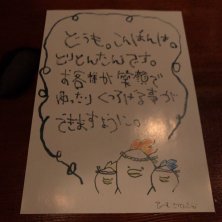 どうも。こんばんは。
とりとんたんです。
お客様が笑顔で
ゆったりくつろげる事が
できますように。